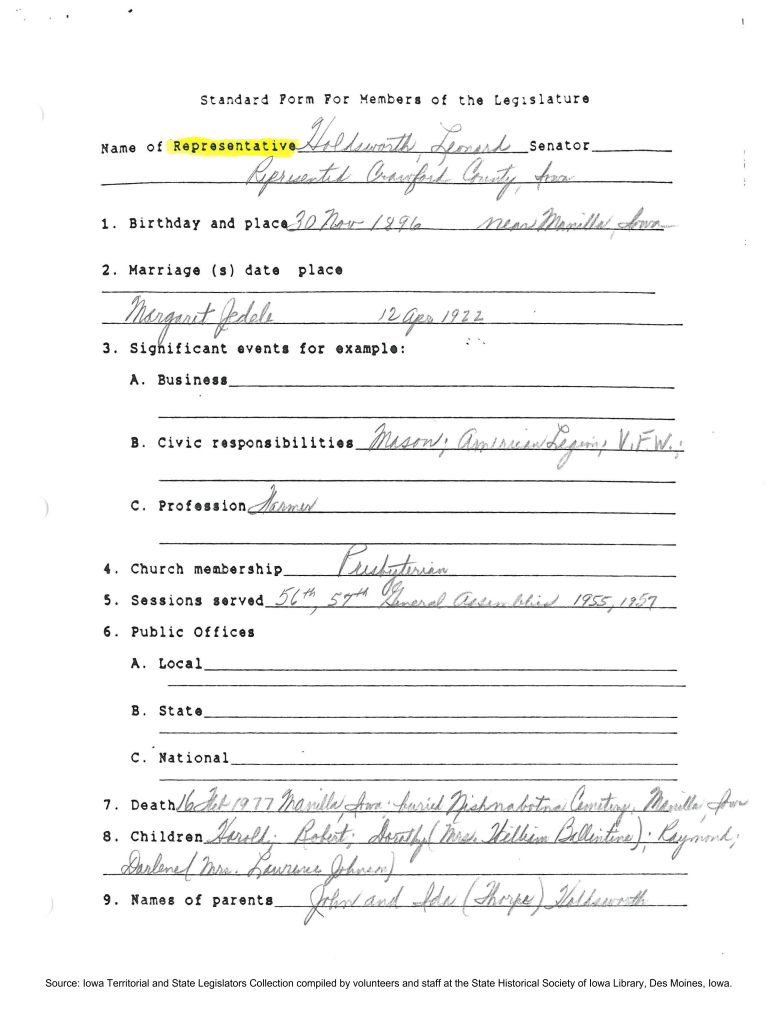 Standard Form For Members of the Legislature
Name of Representative Holdsworth, Leonard Senator
Represented Crawford County, Iowa
1. Birthday and place 30 Nov 1896 near Manilla, Iowa
2. Marriage (s) date place
Margaret Jedele 12 Apr 1922
3. Significant events for example:
A. Business
B. Civic responsibilities Mason; American Legion; V.F.W.;
C. Profession Farmer
4. Church membership Presbyterian
5. Sessions served 56th, 57th General Assemblies 1955, 1957
6. Public Offices
A. Local
B. State
C. National
7. Death 16 Feb 1977 Manilla, Iowa; buried Nishnabotna Cemetery, Manilla, Iowa
8. Children Harold; Robert; Dorothy (Mrs. William Ballintine); Raymond;
Darlene (Mrs. Lawrence Johnson)
9. Names of parents John and Ida (Thorpe) Holdsworth
Source: Iowa Territorial and State Legislators Collection compiled by volunteers and staff at the State Historical Society of Iowa Library, Des Moines, Iowa.